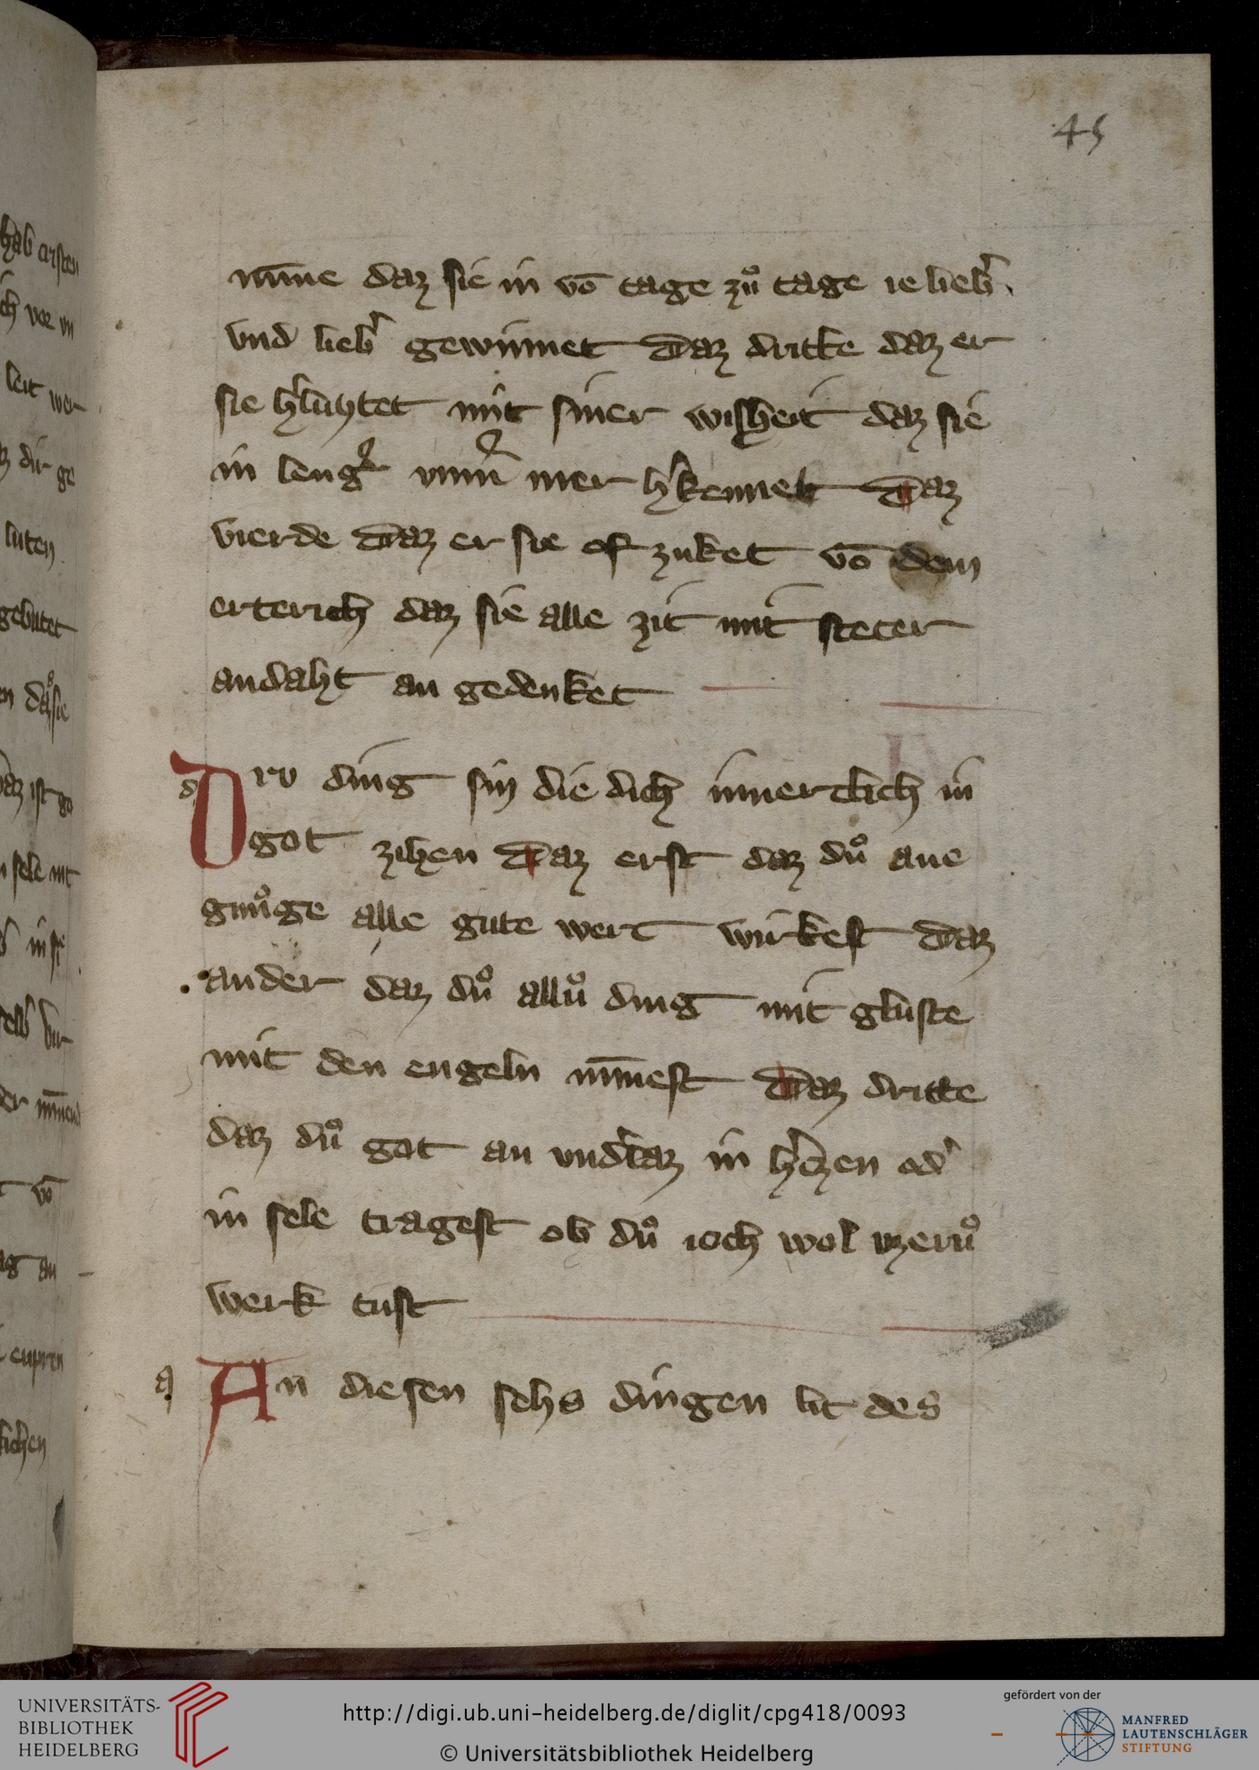 45
nīme daz sie in vō tage zuͦ tage ie lieb͛
vnd lieb͛ gewinnet Daz dritte daz er
sie h͛luhtet mit siner wisheit daz sie
in leng͛ mer h͛kennet Daz
vierde Daz er sie of zuket vō dem
erterich daz sie alle zit mit steter
andaht an gedenket
Drv ding sin die dich innerclich in
got zihen Daz erst daz duͦ ane
gnuͦge alle gute werc wirkest Daz
ander daz duͦ alluͦ ding mit gluste
mit den engeln nīmest Daz dritte
daz duͦ got an vnd͛laz in h͛zen od͛
in sele tragest ob duͦ ioch wol vzeruͦ
werk tust
An diesen sehs dingen lit des
UNIVERSITÄTS-
BIBLIOTHEK
HEIDELBERG
http://digi.ub.uni-heidelberg.de/diglit/cpg418/0093
© Universitätsbibliothek Heidelberg
gefördert von der
MANFRED
LAUTENSCHLÄGER
STIFTUNG